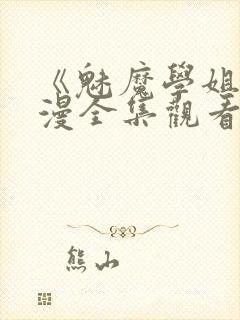 《魅魔學姐
漫全集觀看
熊山